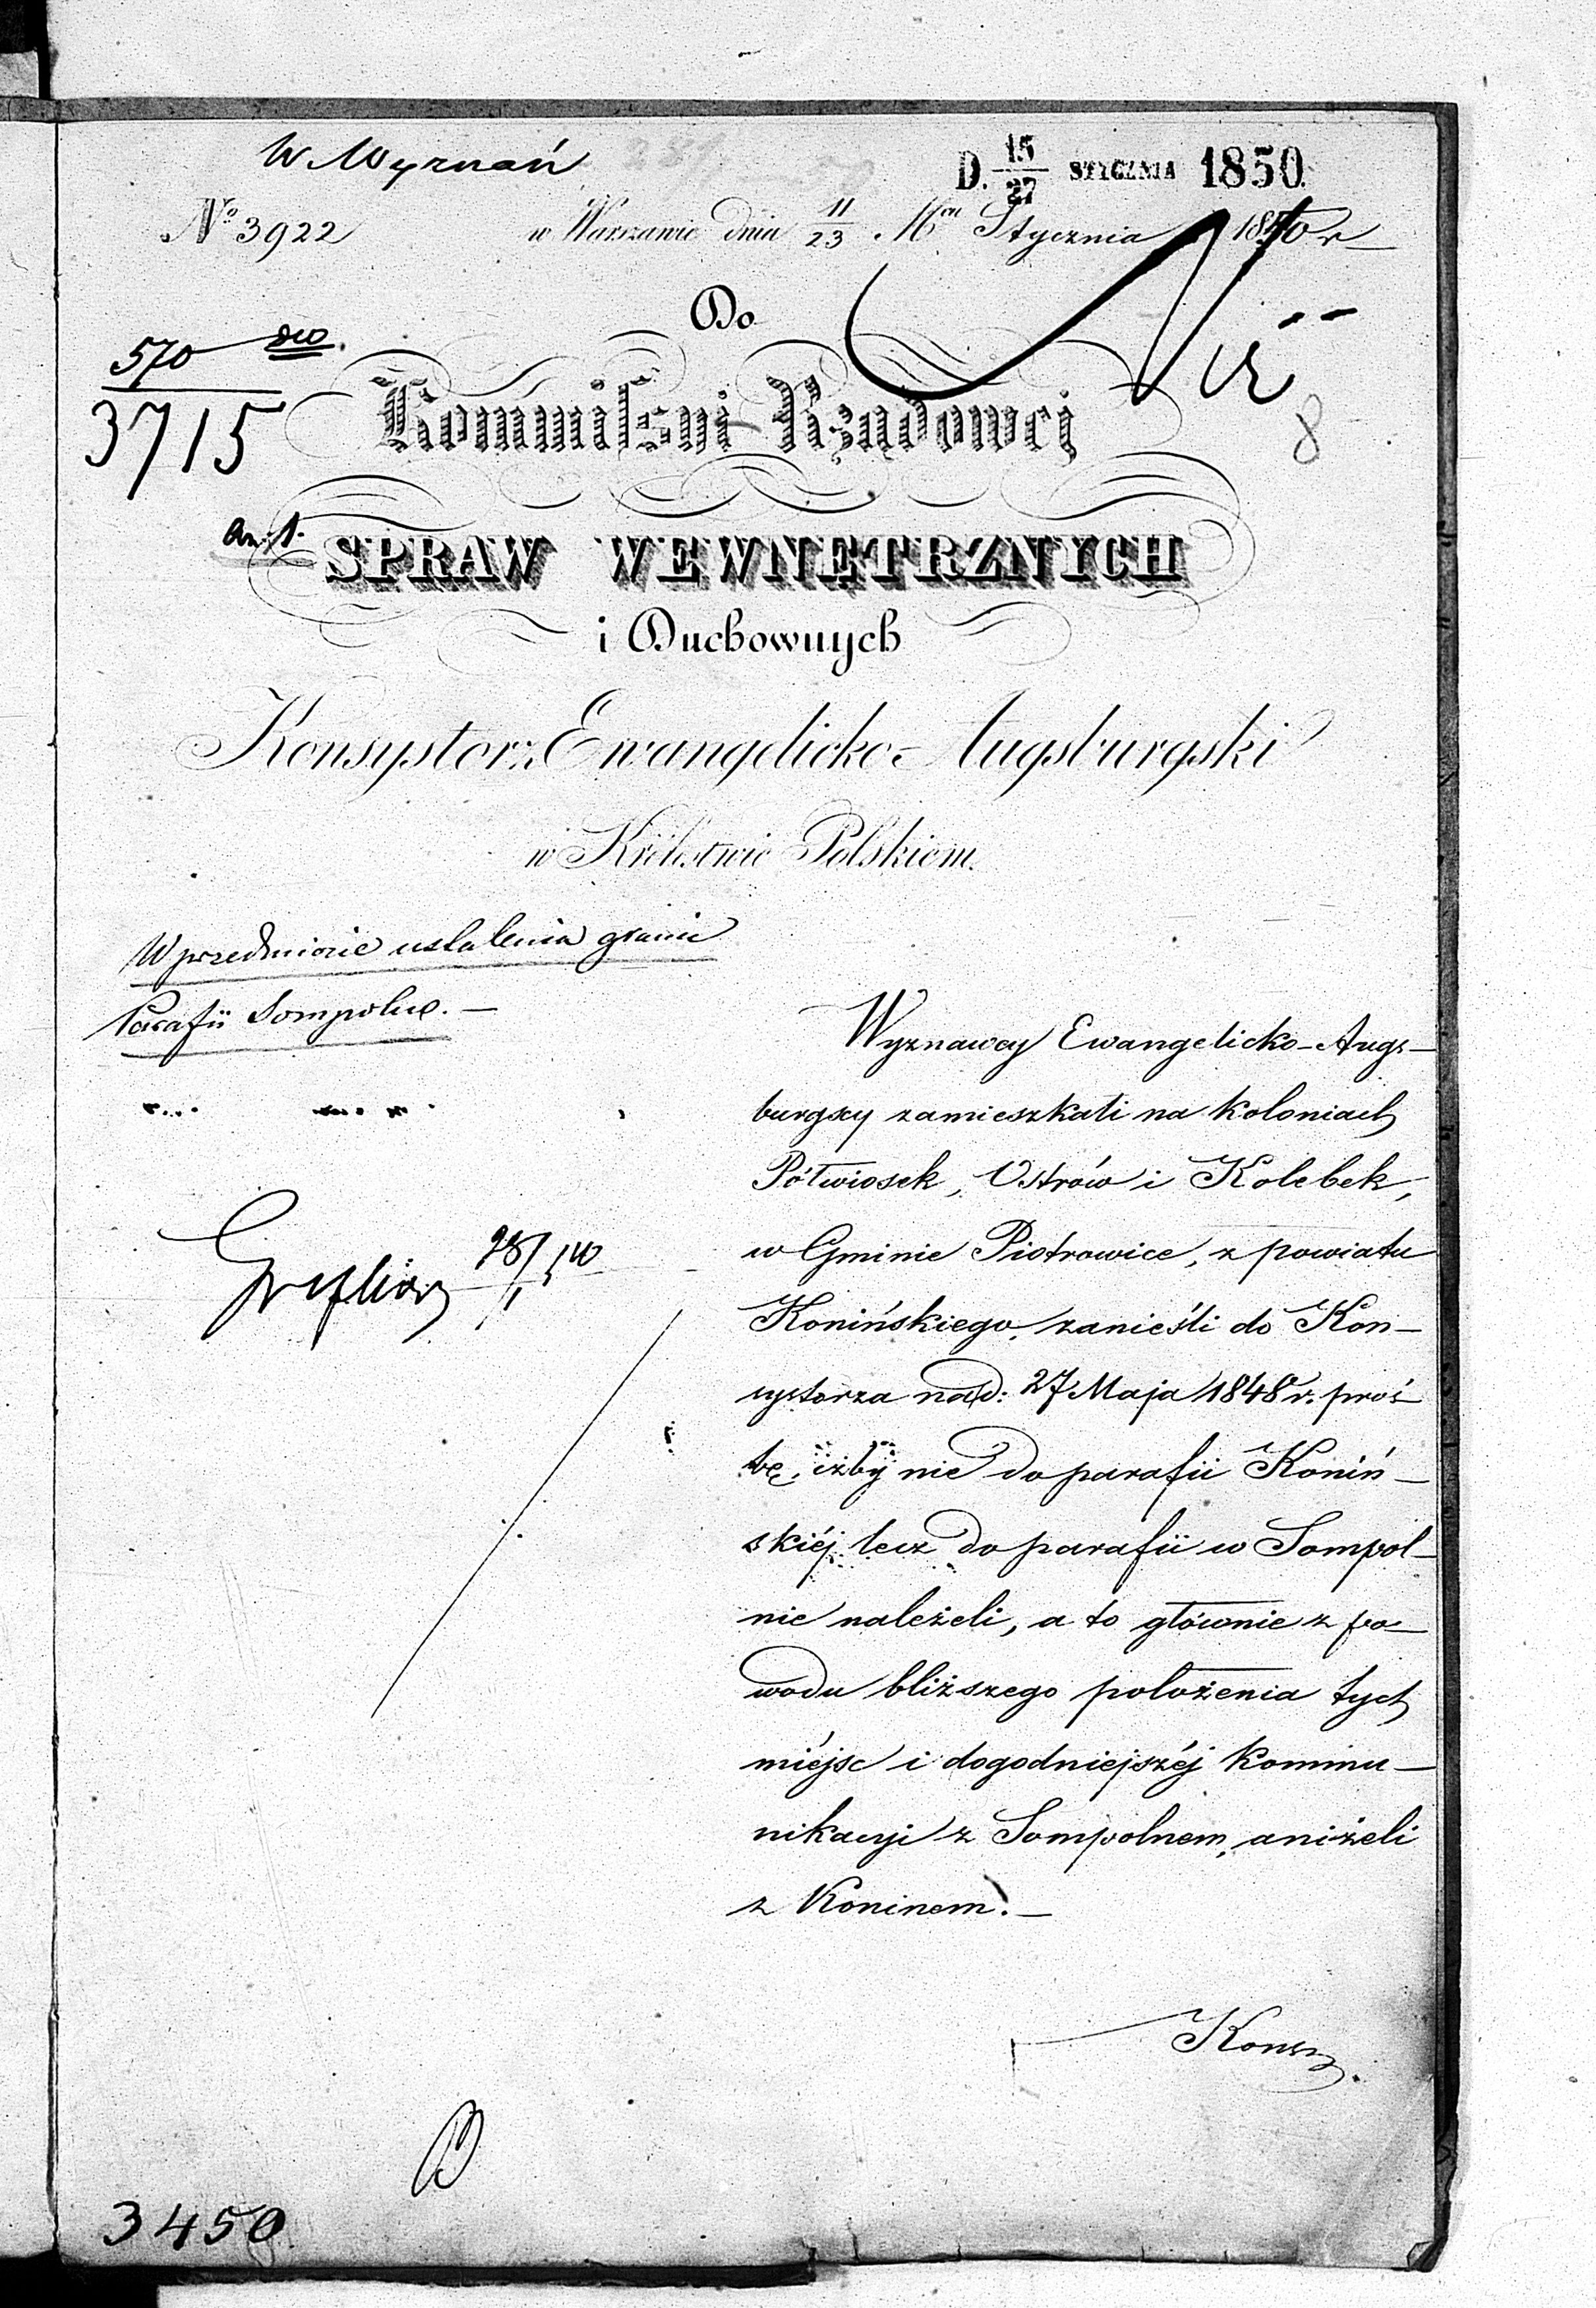 W. Wyznań
D. 15/27 STYCZNIA 1850.
No 3922
w Warszawie dnia 11/23 Mca Stycznia 1850 r
Do
570
3715
8
Kommissyi Rządowej
SPRAW WEWNĘTRZNYCH
i Duchownych
Konsystorz Ewangelicko-Augsburgski
w Królestwie Polskiem.
W przedmiocie ustalenia granic
Parafii Sompolno. —
Wyznawcy Ewangelicko-Augs-
burgscy zamieszkali na koloniach
Półwiosek, Ostrów i Kolebek,
w Gminie Piotrowice, z powiatu
Konińskiego, zanieśli do Kon-
systorza nad: 27 Maja 1848 r. proś-
bę, iżby nie do parafii Koniń-
skiéj lecz do parafii w Sompol-
nie należeli, a to głównie z po-
wodu bliższego położenia tych
miéjsc i dogodniejszéj kommu-
nikacyi z Sompolnem, aniżeli
z Koninem. —
3450